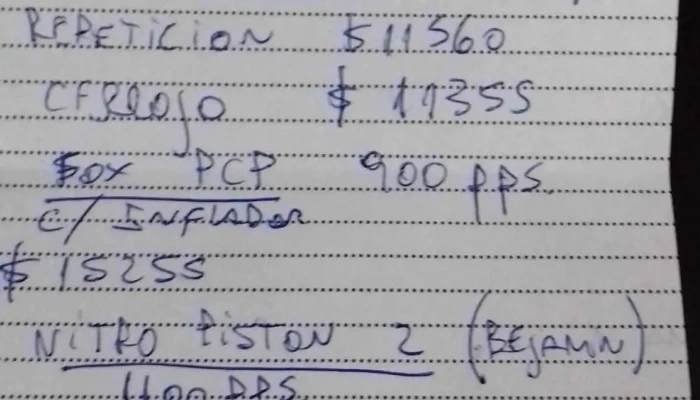 REPETICION $11560
CERROJO $ 11355
FOX PCP 900 pps.
C/ INFLADOR
$ 15255
NITRO PISTON 2 (BEJAMIN)
1100 PPS